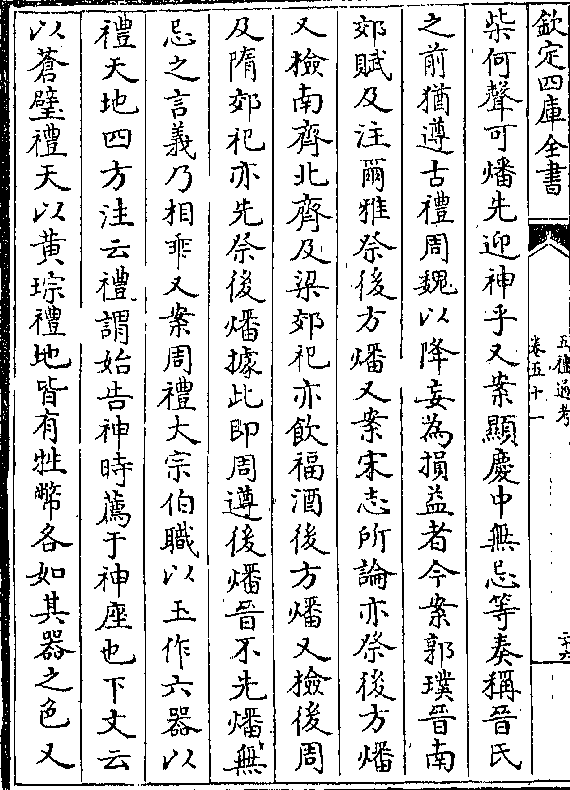 欽定四庫全書
五禮通考
卷五十一
柴何聲可燔先迎神乎又案顯慶中無忌等奏稱晉氏
之前猶遵古禮周魏以降妄為損益者今案郭璞晉南
郊賦及注爾雅祭後方燔又案宋志所論亦祭後方燔
又檢南齊北齊及梁郊祀亦飲福酒後方燔又檢後周
及隋郊祀亦先祭後燔據此即周遵後燔晉不先燔無
忌之言義乃相乖又案周禮大宗伯職以玉作六器以
禮天地四方注云禮謂始告神時薦于神座也下文云
以蒼璧禮天以黃琮禮地皆有牲幣各如其器之色又